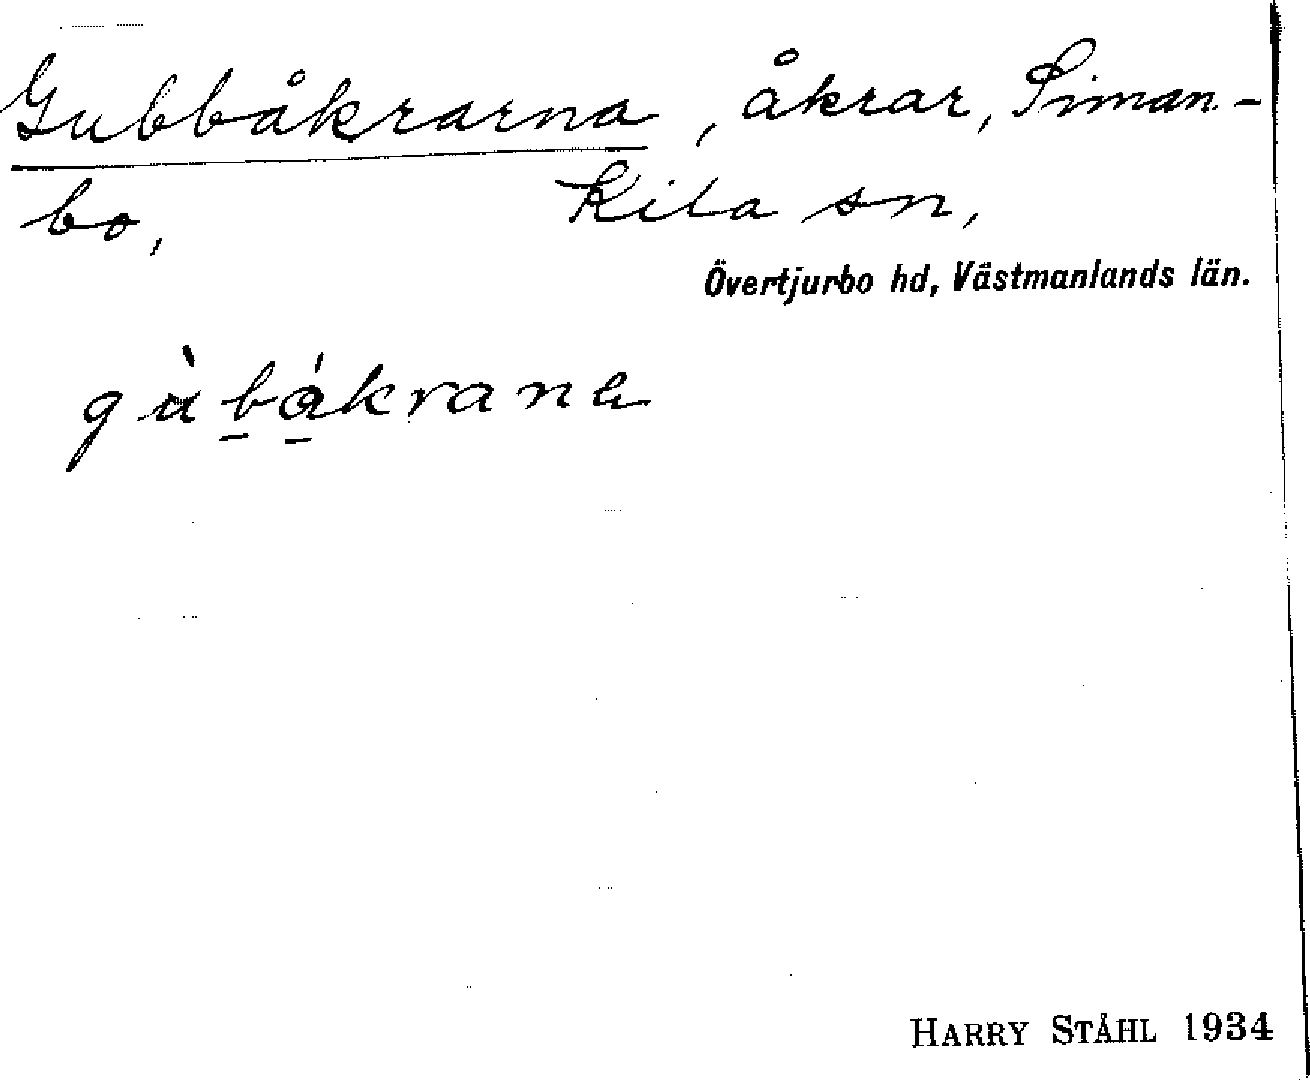 Gubbåkrarna, åkrar, Siman-
bo, Kila sn,
Övertjurbo hd, Västmanlands län.
gὰb̠á̠krana
HARRY STÅHL 1934